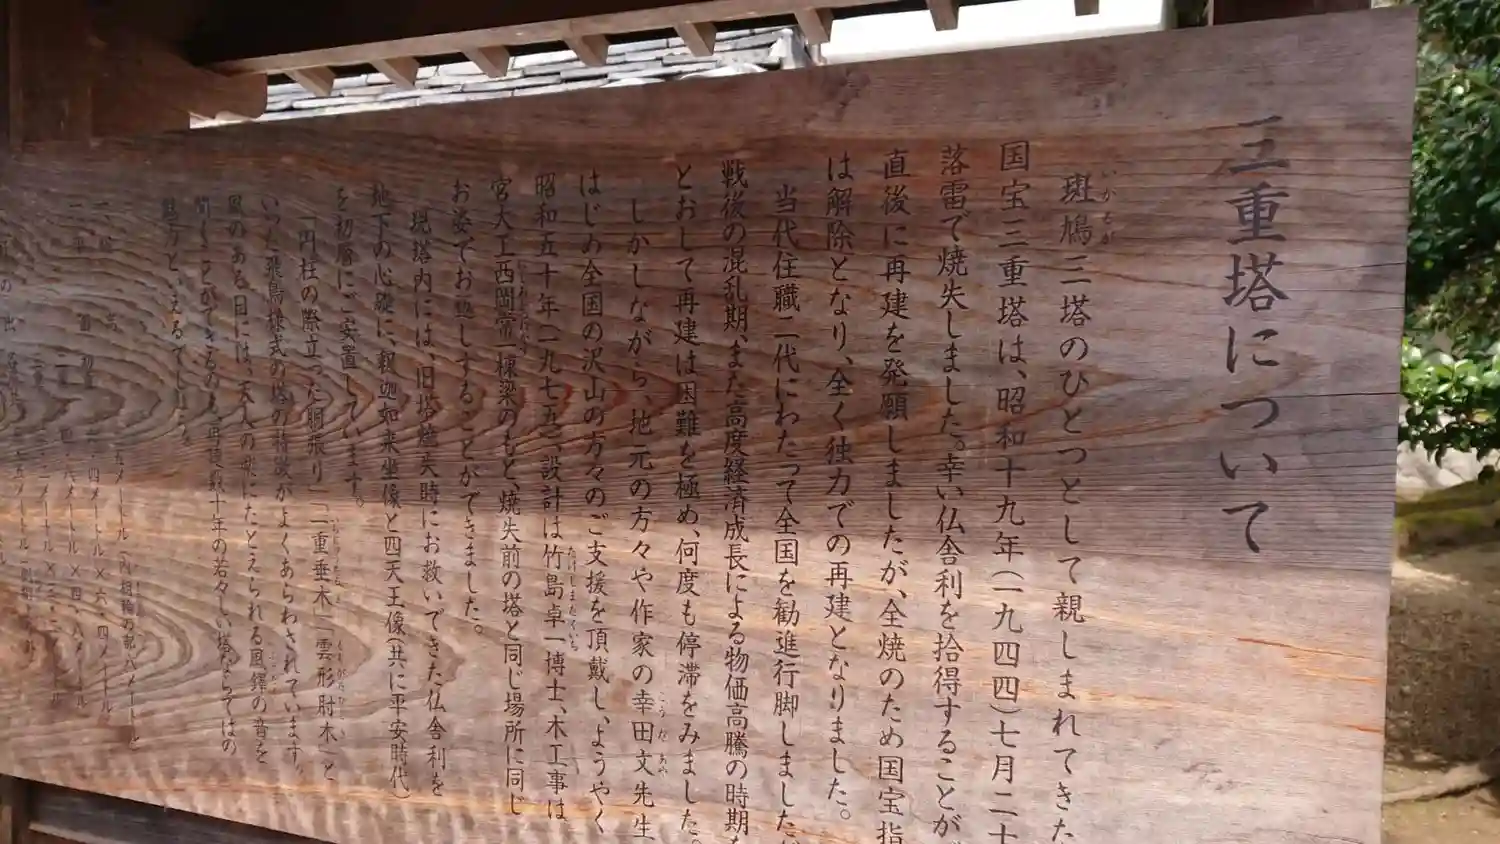 三重塔について
斑鳩三塔のひとつとして親しまれてきた
いかるが
国宝三重塔は、昭和十九年(一九四四)七月二十
落雷で焼失しました。幸い仏舎利を拾得することが
直後に再建を発願しましたが、全焼のため国宝指
は解除となり、全く独力での再建となりました。
当代住職二代にわたって全国を勧進行脚しましたが
戦後の混乱期、また高度経済成長による物価高騰の時期を
とおして再建は困難を極め、何度も停滞をみました。
しかしながら、地元の方々や作家の幸田文先生
こうだ あや
はじめ全国の沢山の方々のご支援を頂戴し、ようやく
昭和五十年(一九七五)設計は竹島卓一博士、木工事は
たけしまたくいち
宮大工西岡常一棟梁のもと、焼失前の塔と同じ場所に同じ
お姿でお返しすることができました。
現塔内には、旧塔焼失時にお救いできた仏舎利を
地下の心礎に、釈迦如来坐像と四天王像(共に平安時代)
を初層にご安置しています。
「円柱の際立った胴張り」「二重垂木」「雲形肘木」と
いった飛鳥様式の塔の特徴がよくあらわされています。
風のある日には、天人の歌にたとえられる風鐸の音を
聞くことができるのも再建数十年の若々しい塔ならではの
魅力といえるでしょう。
メートル(内相輪の部八メートル)
四メートル×六・四メートル